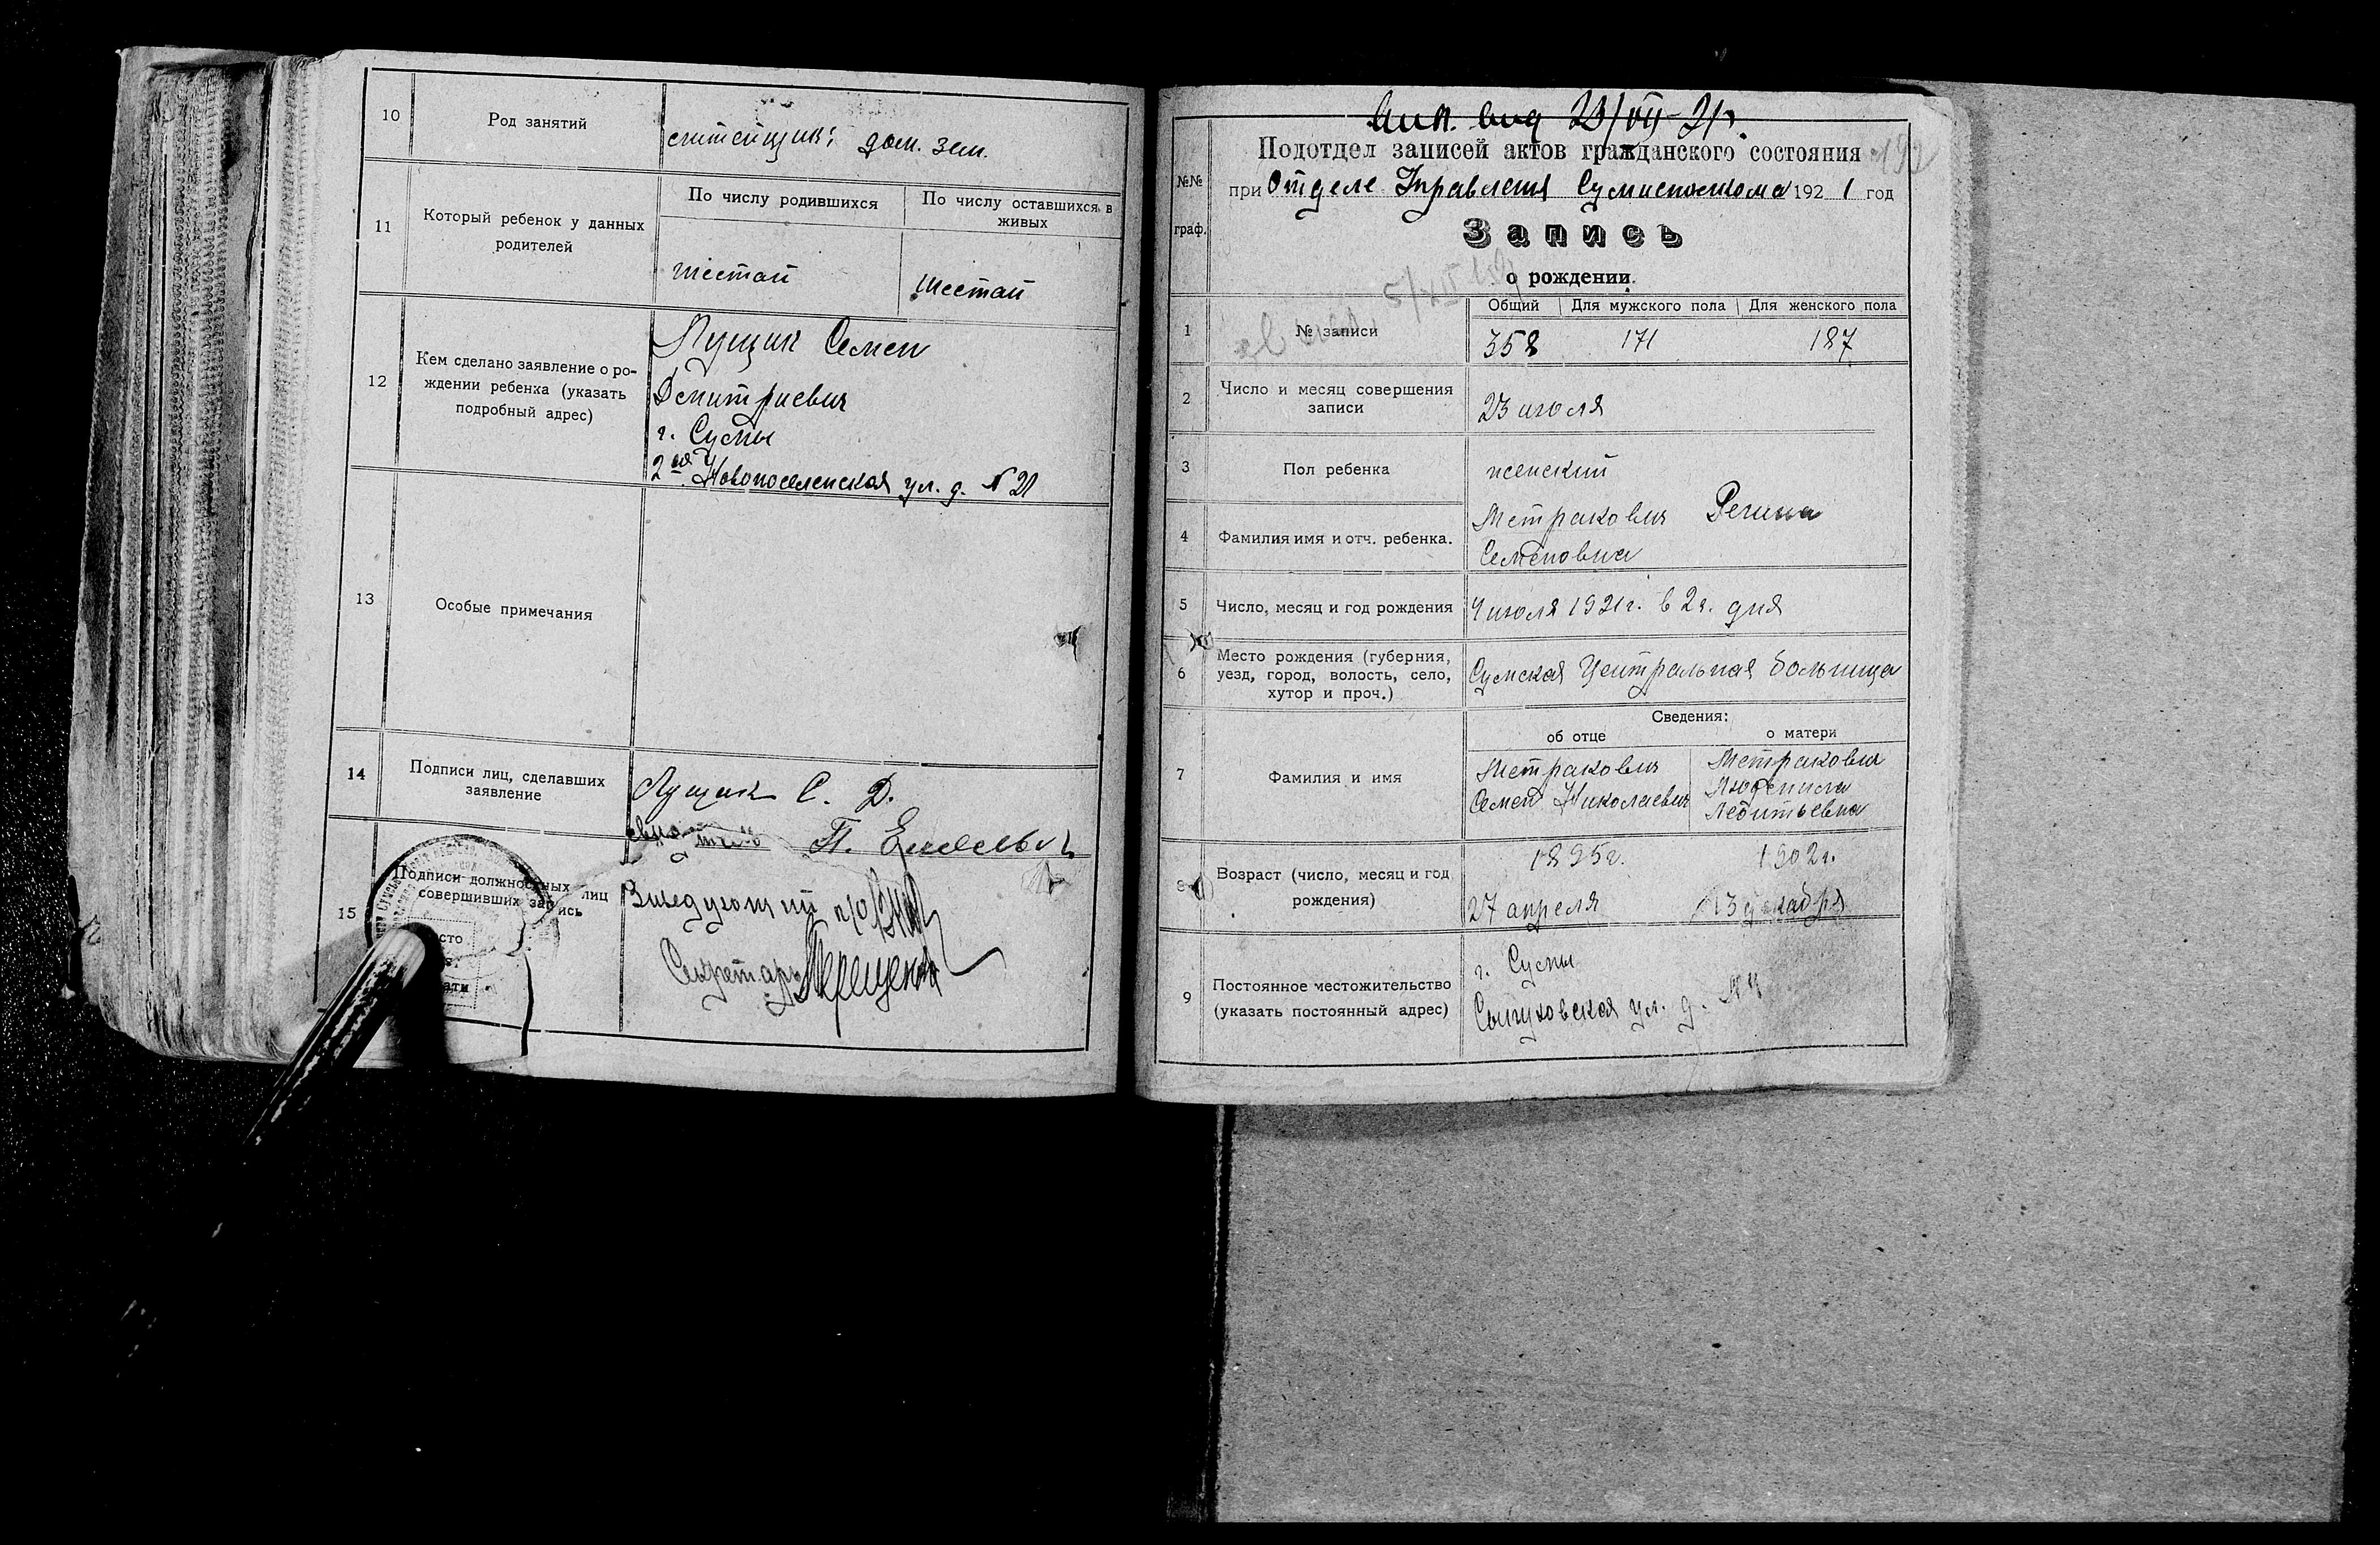 10
Род занятий
дом. зем.
11
Который ребенок у данных
родителей
По числу родившихся
По числу оставшихся в
живых
шестай
шестай
12
Кем сделано заявление о ро-
ждении ребенка (указать
подробный адрес)
Лущик Семен
Дмитриевич
г. Сумы
2ая Новопоселенская ул. д. № 21
13
Особые примечания
14
Подписи лиц, сделавших
заявление
Лущик С. Д.
15
Подписи должностных лиц
совершивших запись
Заведующий
Секретарь
выд 23/VII-21г.
№№
граф.
Подотдел записей актов гражданского состояния
192
при Отделе Управления Сумисполкома 1921 год
Запись
о рождении.
1
№ записи
Общий
Для мужского пола
Для женского пола
358
171
187
2
Число и месяц совершения
записи
23 июля
3
Пол ребенка
женский
4
Фамилия имя и отч. ребенка.
Метракович Регина
Семеновна
5
Число, месяц и год рождения
4 июля 1921 г. в 2 ч. дня
6
Место рождения (губерния,
уезд, город, волость, село,
хутор и проч.)
Сумская Центральная больница
Сведения:
об отце
о матери
7
Фамилия и имя
Метракович
Семен Николаевич
Метракович
8
Возраст (число, месяц и год
рождения)
1895г.
27 апреля
1902г.
13 декабря
9
Постоянное местожительство
(указать постоянный адрес)
г. Сумы
ул. д. № 4